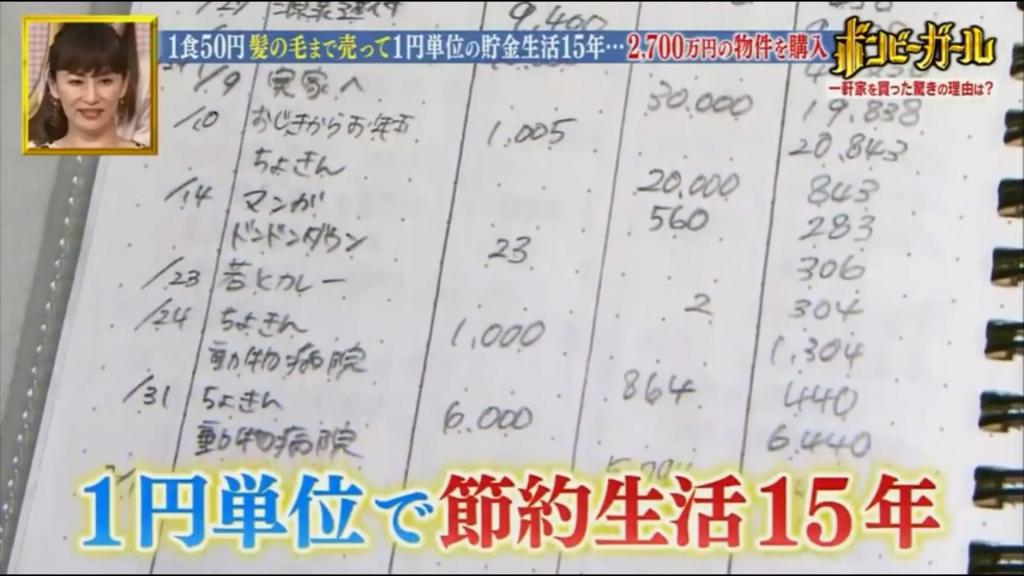 1食50円 髪の毛まで売って1円単位の貯金生活15年…2,700万円の物件を購入
ボンビーガール
一軒家を買った驚きの理由は?
9,400
1/9 実家へ 30,000 19,838
1/10 おじきからお年玉 1,005 20,843
ちょきん 20,000 843
1/14 マンガ 560 283
ドンドンダウン 23 306
1/23 若とカレー 2 304
1/24 ちょきん 1,000 1,304
動物病院 864 440
1/31 ちょきん 6,000 6,440
動物病院
1円単位で節約生活15年